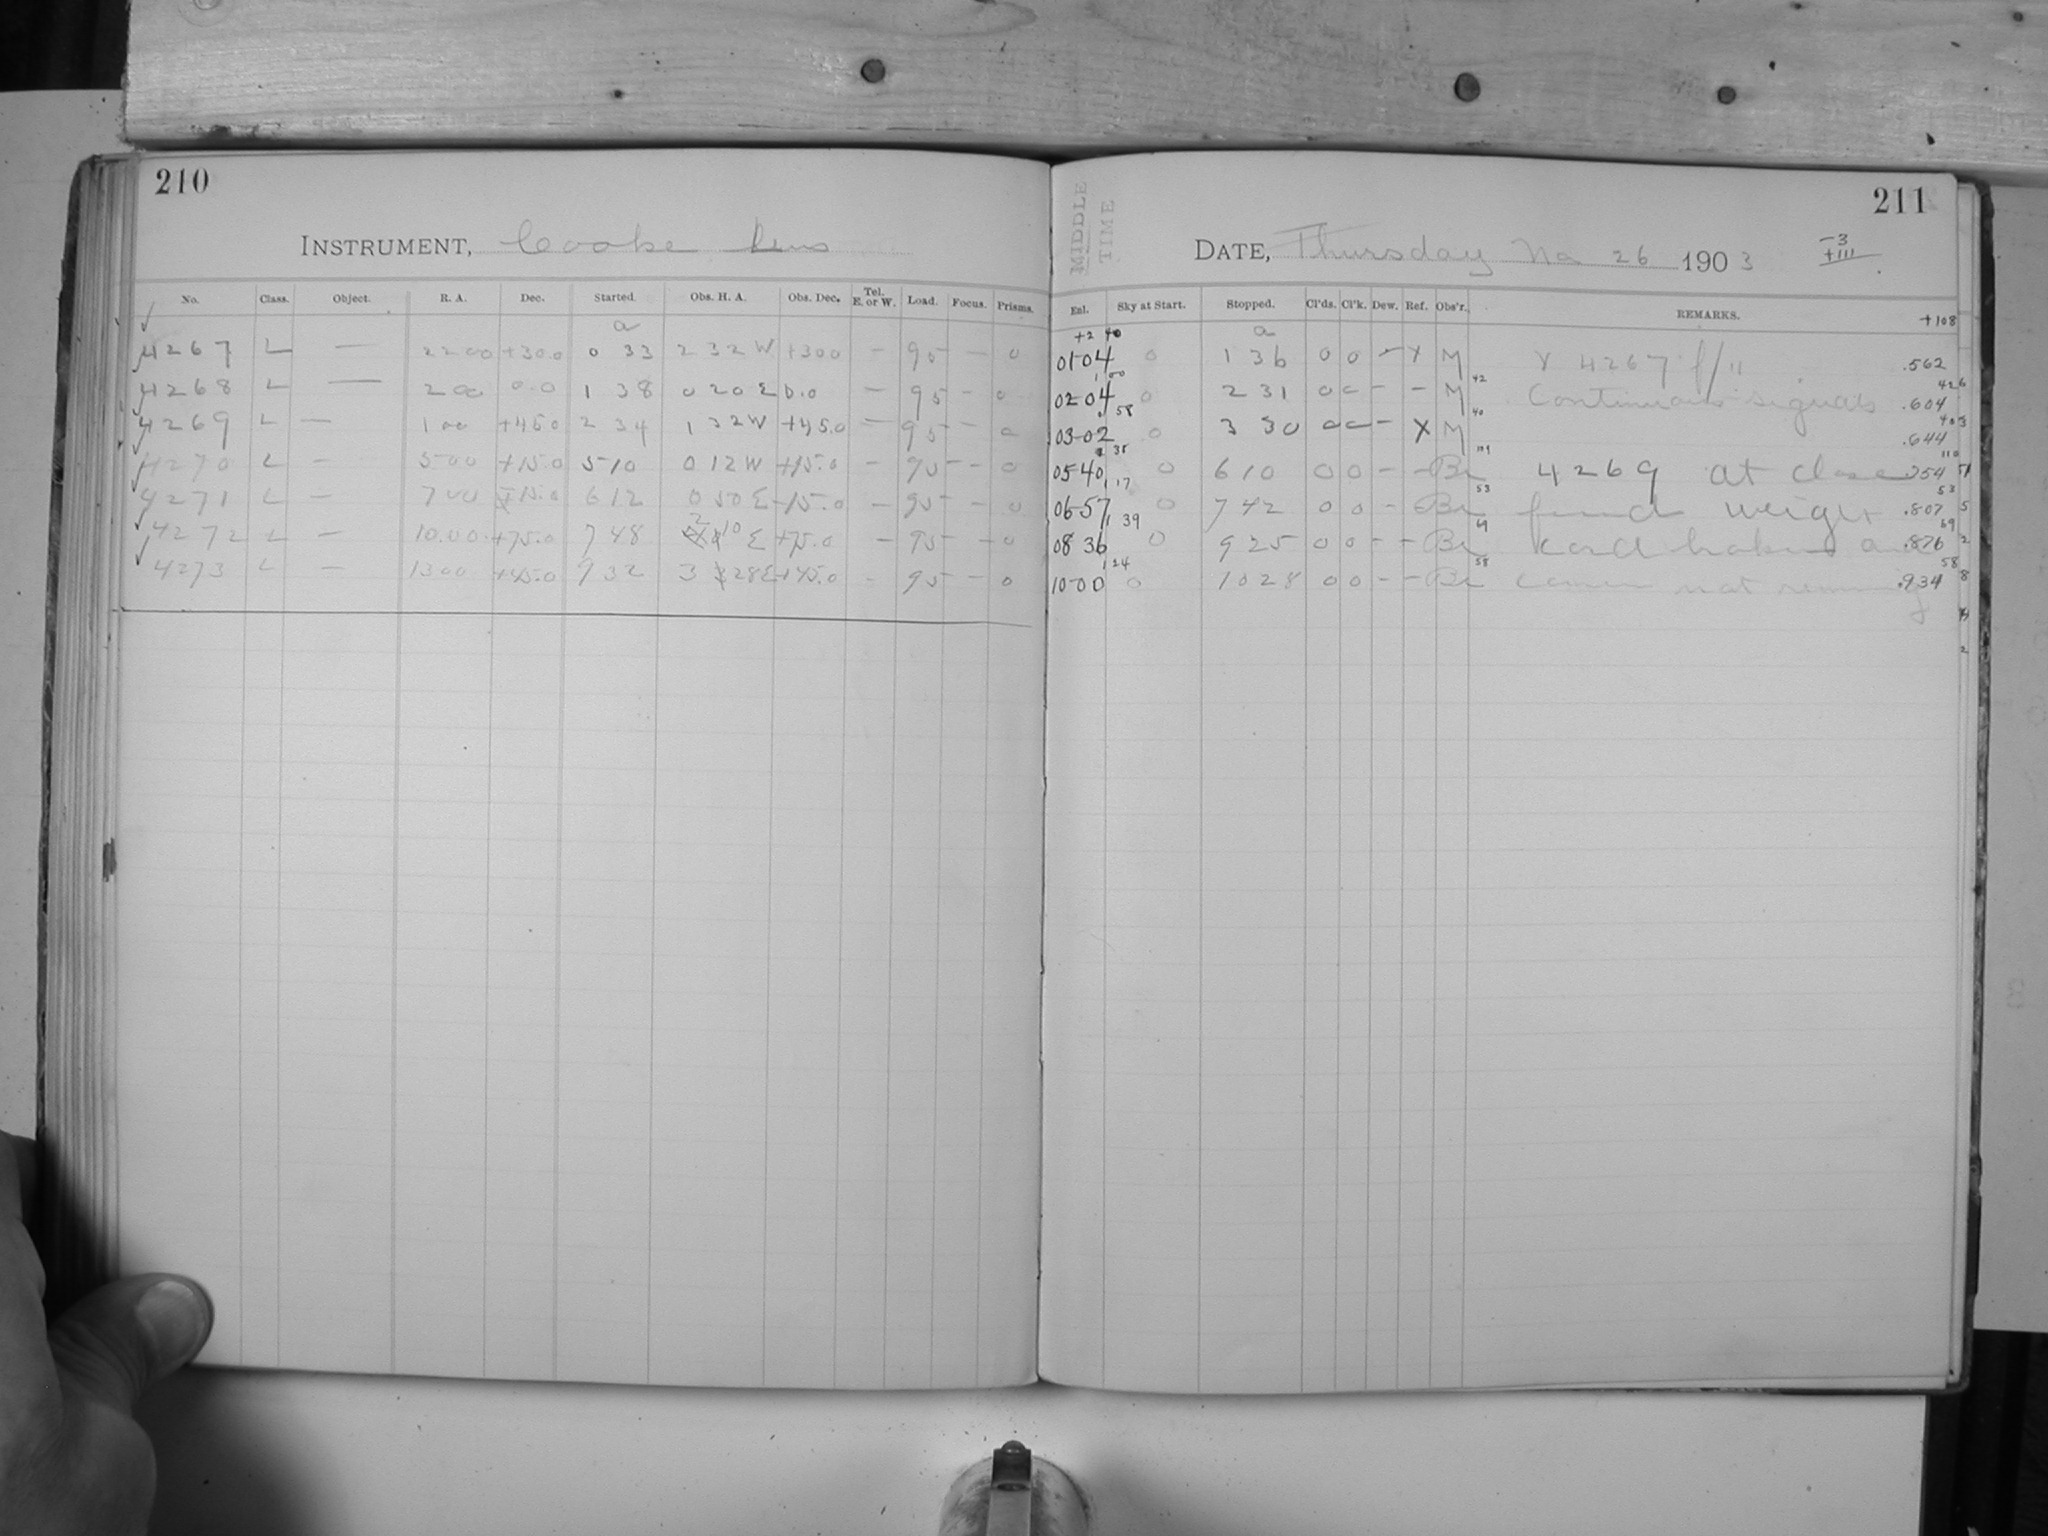 210
INSTRUMENT, Cooke Lens
No. Class. Object. R. A. Dec. Started. Obs. H. A. Obs. Dec. Tel. E. or W. Load. Focus. Prisms.
a
4267 L — 22 00 +30.0 0 33 2 32 W +30.0 — 95 — 0
4268 L — 2 00 0.0 1 38 0 20 E 0.0 — 95 — 0
4269 L — 1 00 +45.0 2 34 1 32 W +45.0 — 95 — 0
4270 L — 5 00 +15.0 5 10 0 12 W +15.0 — 95 — 0
4271 L — 7 00 -15.0 6 12 0 50 E -15.0 — 95 — 0
4272 L — 10.00 +75.0 7 48 2 10 E +75.0 — 95 — 0
4273 L — 13 00 +45.0 9 32 3 28 E +45.0 — 95 — 0
211
MIDDLE TIME
DATE, Thursday No 26 1903
-3
+111
Enl. Sky at Start. Stopped. Cl'ds. Cl'k. Dew. Ref. Obs'r. REMARKS.
+108
+2 40 a
01-04 0 1 36 0 0 — X M r 4267 f/11 .562
1 00 42 426
02-04 0 2 31 0 0 — — M Continuous signals .604
58 40 403
03-02 0 3 30 0 0 — X M .644
38 109 110
05-40 0 6 10 0 0 — — Br 4269 at close .754
1 17 53 53
06-57 0 7 42 0 0 — — Br found weight .807
1 39 69 69
08 36 0 9 25 0 0 — — Br cord broken and .876
1 24 58 58
10-00 0 10 28 0 0 — — Br camera not running .934